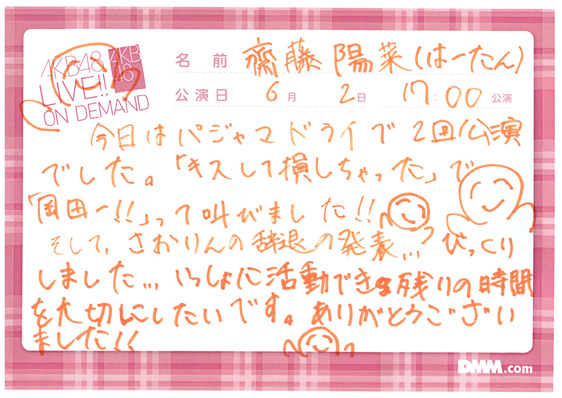 AKB48
LIVE!!
ON DEMAND
AKB
48
名前 齋藤陽菜(はーたん)
公演日 6月 2日 17:00 公演
今日はパジャマドライブで2回公演
でした。「キスして損しちゃった」で
「岡田ー!!」って叫びました!!
そして、さかりんの辞退の発表… びっくり
しました… いっしょに活動できる残りの時間
を大切にしたいです。ありがとうござい
ました!!
DMM.com